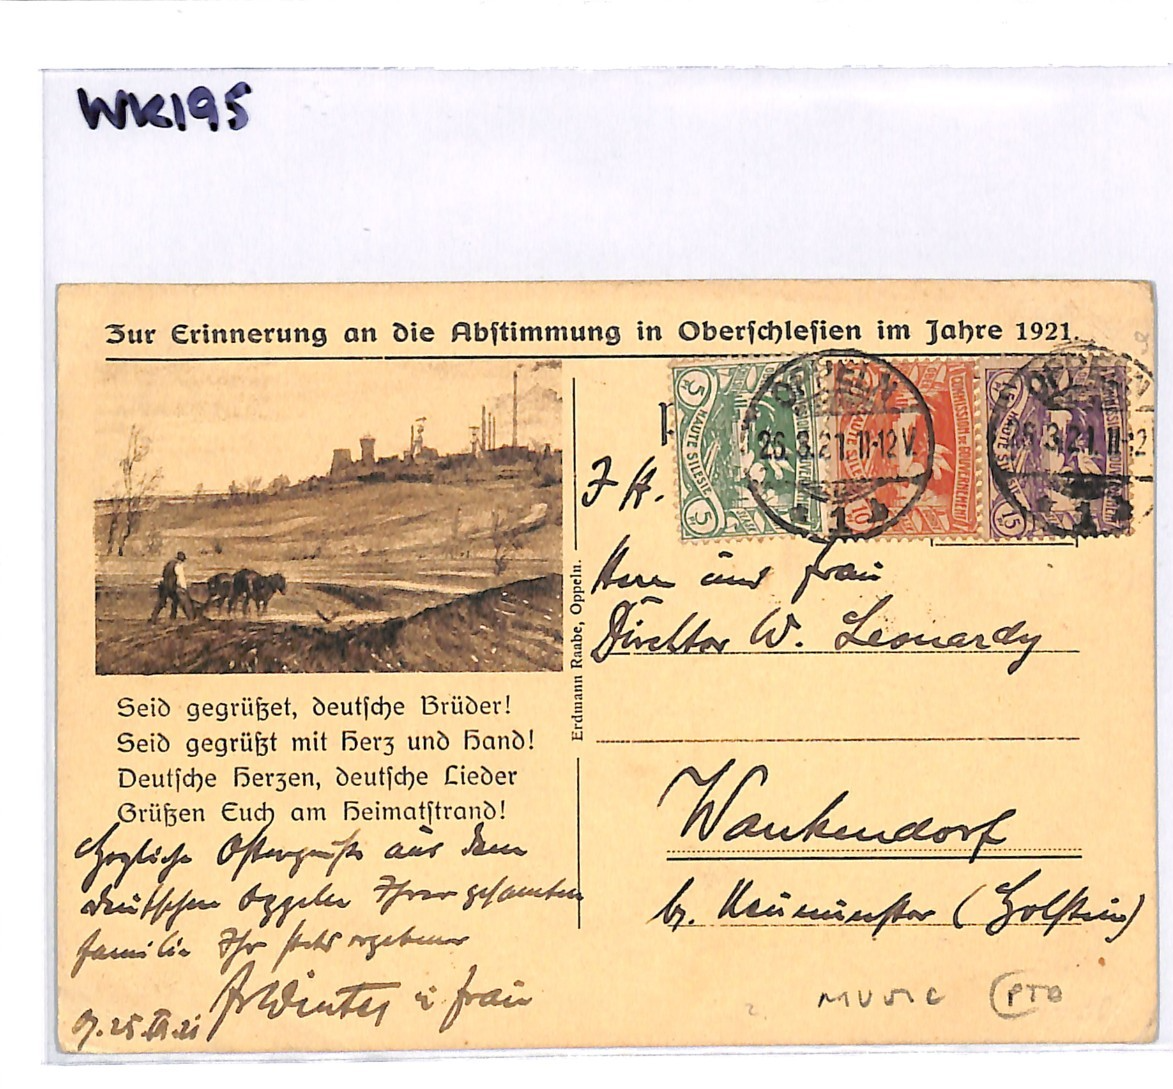 WK195
Zur Erinnerung an die Abstimmung in Oberschlesien im Jahre 1921.
5 HAUTE SILESIE 5
COMMISSION DE GOUVERNEMENT HAUTE SILESIE 10
15 HAUTE SILESIE 15
OPPELN
26.3.21.11-12V.
1
OPPELN
26.3.21.11-12
1
Erdmann Raabe, Oppeln.
Seid gegrüßet, deutsche Brüder!
Seid gegrüßt mit Herz und Hand!
Deutsche Herzen, deutsche Lieder
Grüßen Euch am Heimatstrand!
Herzliche Ostergrüße aus dem
deutschen Oppeln Ihrer gesamten
Familie Ihr stets ergebener
Winter u Frau
O. 25.III.21
Herrn und Frau
Direktor W. Leonardy
Wankendorf
b. Neumünster (Holstein)
MUSIC (PTO